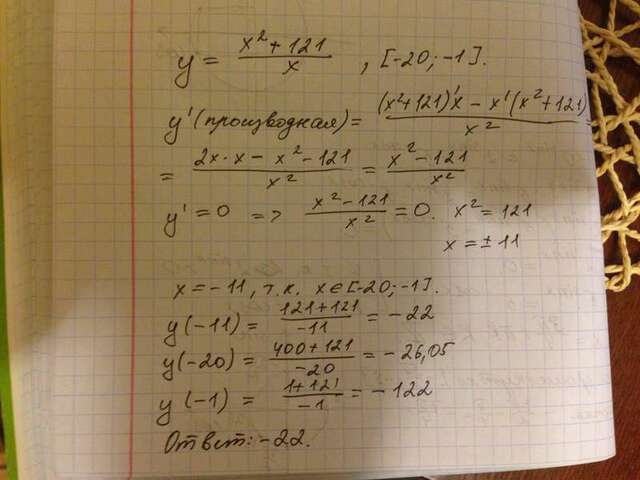 y = (x² + 121) / x , [-20; -1].
y'(производная) = ((x²+121)'x - x'(x²+121)) / x² =
= (2x·x - x² - 121) / x² = (x² - 121) / x²
y' = 0 => (x² - 121) / x² = 0. x² = 121
x = ±11
x = -11, т.к. x ∈ [-20; -1].
y(-11) = (121+121) / -11 = -22
y(-20) = (400+121) / -20 = -26,05
y(-1) = (1+121) / -1 = -122
Ответ: -22.